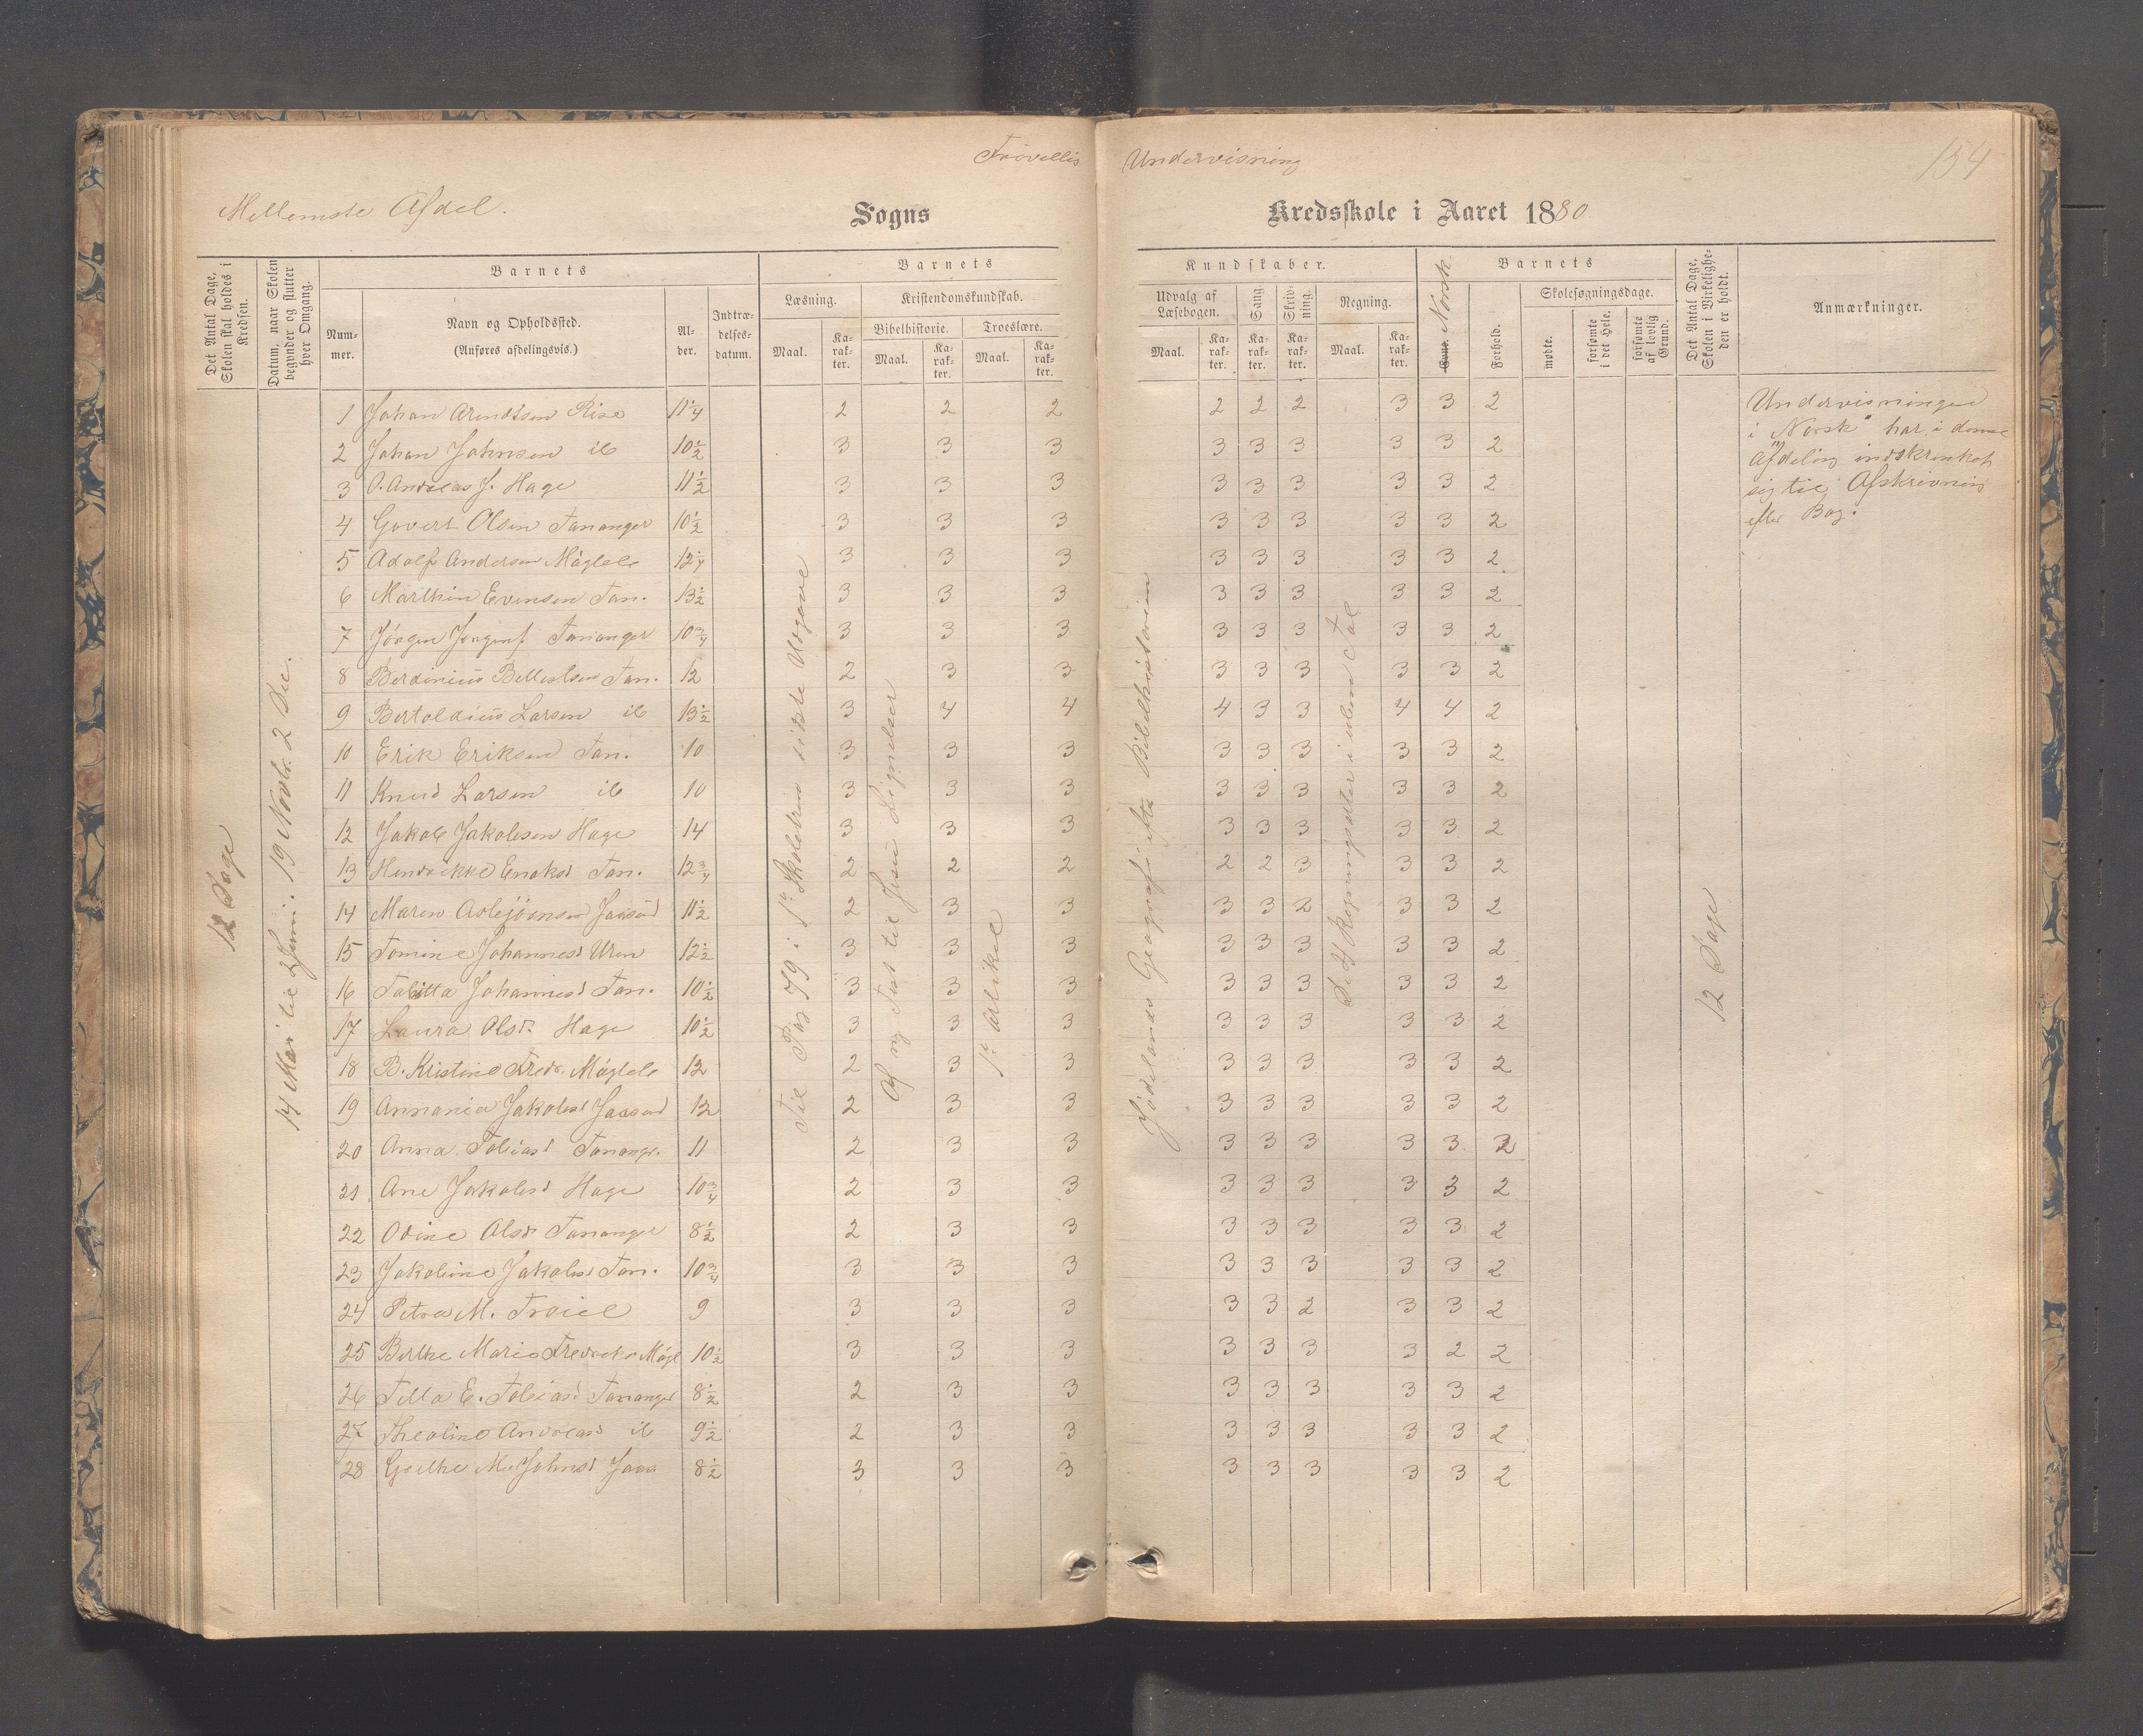 Frivillig Undervisning
154
Mellemste Afdel.
Sogns Kredsskole i Aaret 1880
Det Antal Dage, Skolen skal holdes i Kredsen.
Datum, naar Skolen begynder og slutter hver Omgang.
Barnets
Nummer.
Navn og Opholdssted. (Anføres afdelingsvis.)
Alder.
Indtrædelsesdatum.
Barnets
Læsning.
Kristendomskundskab.
Bibelhistorie.
Troeslære.
Maal.
Karakter.
Maal.
Karakter.
Maal.
Karakter.
Kundskaber.
Udvalg af Læsebogen.
Sang.
Skrivning.
Regning.
Maal.
Karakter.
Karakter.
Karakter.
Maal.
Karakter.
Norsk
Barnets
Evne.
Forhold.
Skolesøgningsdage.
mødte.
forsømte i det Hele.
forsømte af lovlig Grund.
Det Antal Dage, Skolen i Virkeligheden er holdt.
Anmærkninger.
12 Dage
14 Mai til 2 Juni. 19 Novbr. 2 Dec.
Til Pag 79 i 1ste Skoletrin sidste Udgave
Af ny Test til Jesu Lignelser
1ste Artikel
Jødelands Geografi Bibelhistorien
De 4 Regningsarter i uben. Tal
12 Dage
Undervisningen
i "Norsk" har i denne
Afdeling indskrænket
sig til Afskrivning
efter Bog.
1 Johan Arendtsen Risa 11 1/4 2 2 2 2 2 2 3 3 2
2 Johan Johnsen ib 10 1/2 3 3 3 3 3 3 3 3 2
3 O. Andreas J. Hage 11 1/2 3 3 3 3 3 3 3 3 2
4 Govert Olsen Tananger 10 1/2 3 3 3 3 3 3 3 3 2
5 Adolf Andersen Møglebs 12 1/4 3 3 3 3 3 3 3 3 2
6 Marthin Evensen Tan. 13 1/2 3 3 3 3 3 3 3 3 2
7 Jørgen Jørgens. Tananger 10 3/4 3 3 3 3 3 3 3 3 2
8 Berdinius Tan. 12 2 3 3 3 3 3 3 3 2
9 Bertoldius Larsen ib 13 1/2 3 4 4 4 3 3 4 4 2
10 Erik Eriksen Tan. 10 3 3 3 3 3 3 3 3 2
11 Knud Larsen ib 10 3 3 3 3 3 3 3 3 2
12 Jakob Jakobsen Hage 14 3 3 3 3 3 3 3 3 2
13 Hendrikke Enoksd Tan. 12 3/4 2 2 2 2 2 3 3 3 2
14 Maren Asbjørnsen Jaasund 11 1/2 2 3 3 3 3 2 3 3 2
15 Tomine Johannesd Uren 12 1/2 3 3 3 3 3 3 3 3 2
16 Tabitta Johannesd Tan. 10 1/2 3 3 3 3 3 3 3 3 2
17 Laura Olsd. Hage 10 1/2 3 3 3 3 3 3 3 3 2
18 B. Kristine Fredr. Møglebs 12 2 3 3 3 3 3 3 3 2
19 Annania Jakobsd Jaasund 12 2 3 3 3 3 3 3 3 2
20 Anna Tobiasd Tanang. 11 2 3 3 3 3 3 3 3 2
21 Ane Jakobsd Hage 10 3/4 2 3 3 3 3 3 3 3 2
22 Odine Olsd Tananger 8 1/2 2 3 3 3 3 3 3 3 2
23 Jakobine Jakobsd Tan. 10 3/4 3 3 3 3 3 3 3 3 2
24 Petra M. 9 3 3 3 3 3 2 3 3 2
25 Berthe Marie Fredriks Møgl 10 1/2 3 3 3 3 3 3 3 2 2
26 Tilla E. Tobiasd Tananger 8 1/2 2 3 3 3 3 3 3 3 2
27 Theoline Andreasd ib 9 1/2 2 3 3 3 3 3 3 3 2
28 Goethe M. Johnsd Jaas 8 1/2 3 3 3 3 3 3 3 3 2